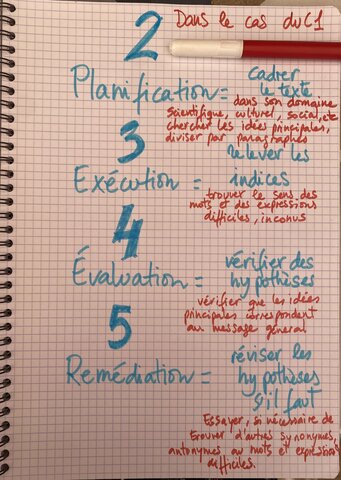 2 Dans le cas du C1
Planification = cadrer
le texte
dans son domaine
scientifique, culturel, social, etc
chercher les idées principales,
diviser par paragraphes
3
relever les
Exécution = indices
trouver le sens des
mots et des expressions
difficiles, inconus
4
vérifier des
Évaluation = hypothèses
vérifier que les idées
principales correspondent
au message général
5
réviser les
Remédiation = hypothèses
s'il faut
Essayer, si nécessaire de
trouver d'autres synonymes,
antonymes au mots et expressions
difficiles.